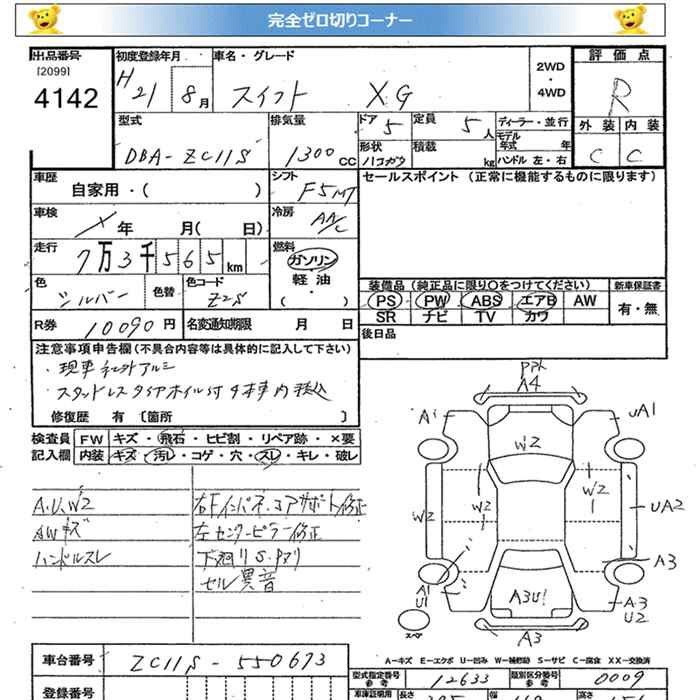 完全ゼロ切りコーナー
出品番号
[2099]
4142
初度登録年月
H21 8月
車名・グレード
スイフト XG
2WD
・
4WD
評価点
R
外装 内装
C C
型式
DBA-ZC11S
排気量
1300 CC
ドア 5
形状
定員 5人
積載 kg
ディーラー・並行
モデル年式 年
ハンドル 左・右
車歴
自家用・( )
シフト
F5MT
セールスポイント (正常に機能するものに限ります)
車検
年 月( 日)
冷房
AA/C
走行
7万3千565km
燃料
ガソリン
軽油
・( )
色
シルバー
色替
色コード
Z2S
装備品 (純正品に限り○をつけてください)
PS PW ABS エアB AW
SR ナビ TV カワ
新車保証書
有・無
R券 10090円
名変通知期限 月 日
後日品
注意事項申告欄 (不具合内容等は具体的に記入して下さい)
・スタッドレスタイアホイル付4本車内積込
修復歴 有 〔箇所 〕
検査員記入欄
FW キズ・飛石・ヒビ割・リペア跡・×要
内装 キズ・汚レ・コゲ・穴・スレ・キレ・破レ
A.U.W2
AWキズ
ハンドルスレ
右Fインパネ.コアサポート修正
左センターピラー修正
下廻りS.
セル異音
A4
A1
UA1
W2
W2
W2
W2
1
UA2
A1
U1
A3
A3U1
A3
U2
スペア
A3
A-キズ E-エクボ U-凹み W-補修跡 S-サビ C-腐食 XX-交換済
車台番号
ZC11S-550673
型式指定番号
参考
12633
類別区分番号
参考
0009
登録番号
車庫証明用
長さ
幅